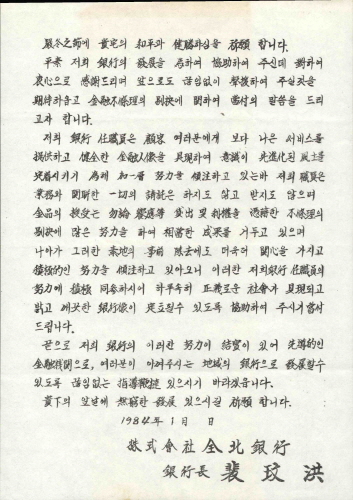 嚴冬之節에 貴宅의 和平과 健勝하심을 祈願 합니다.
平素 저희 銀行의 發展을 爲하여 協助하여 주신데 對하여
衷心으로 感謝드리며 앞으로도 끊임없이 聲援하여 주실것을
期待하옵고 金融不條理의 剔抉에 關하여 當付의 말씀을 드리
고자 합니다.
저희 銀行 任職員은 顧客 여러분에게 보다 나은 서비스를
提供하고 健全한 金融人像을 具現하여 意識이 先進化된 風土를
定着시키기 爲해 加一層 努力을 傾注하고 있는바 저희 職員은
業務와 關聯한 一切의 請託은 하지도 않고 받지도 않으며
金品의 授受는 勿論 饗應等 貸出 및 利權을 憑藉한 不條理의
剔抉에 많은 努力을 하여 相當한 成果를 거두고 있으며
나아가 그러한 素地의 事前 除去에도 더욱더 關心을 가지고
積極的인 努力을 傾注하고 있아오니 이러한 저희銀行 任職員의
努力에 積極 同參하시어 하루속히 正義로운 社會가 具現되고
밝고 깨끗한 銀行像이 定立될수 있도록 協助하여 주시기 當付
드립니다.
끝으로 저희 銀行의 이러한 努力이 結實이 있어 先導的인
金融機關으로, 여러분이 아껴주시는 地域의 銀行으로 發展할수
있도록 끊임없는 指導鞭撻 있으시기 바라겠읍니다.
貴下의 앞날에 無窮한 發展 있으시길 祈願 합니다.
1984年 1月 日
株式會社 全北銀行
銀行長 裴玟洪